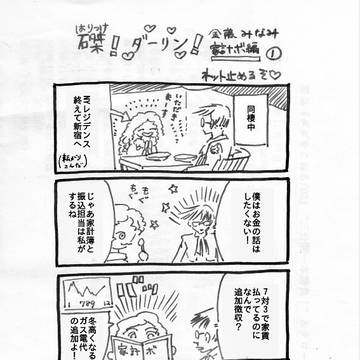 はりつけ
磔！ダーリン！
金藤みなみ
家計ボ編①
ネット止めるぞ♡
同棲中
いただきまーす
IMレジデンス
終えて新宿へ
僕はお金の話は
したくない！
もぐもぐ
じゃあ家計簿と
振込担当は私が
するね
7対3で家賃
払ってるのに
なんで
追加徴収？
1 789 12
冬高くなる
ガス電代
の追加よ！
家計ボ